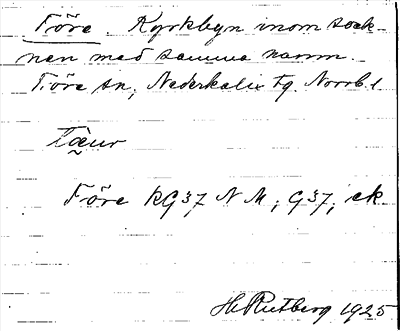 Töre. Kyrkbyn inom sock-
nen med samma namn.
Töre sn, Nederkalix tg. Norrb. l.
Töre KG37 NM; G37; ek
H Rutberg 1925